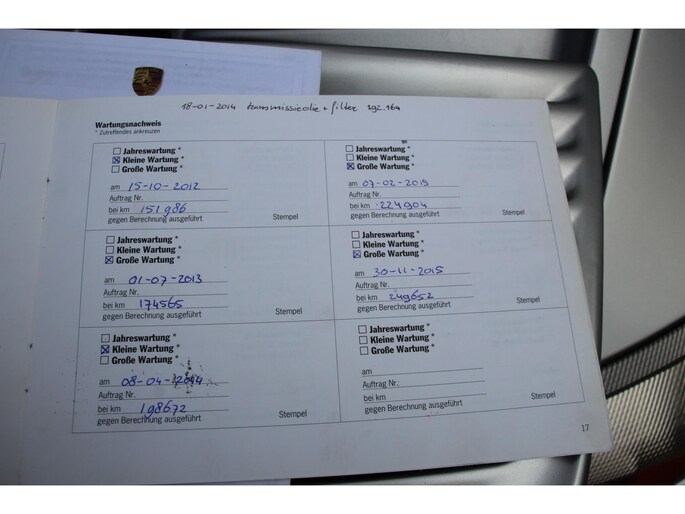 18-01-2014 transmissieolie + filter 192.164
Wartungsnachweis
* Zutreffendes ankreuzen
Jahreswartung *
Kleine Wartung *
Große Wartung *
am 15-10-2012
Auftrag Nr.
bei km 151986
gegen Berechnung ausgeführt Stempel
Jahreswartung *
Kleine Wartung *
Große Wartung *
am 01-07-2013
Auftrag Nr.
bei km 174565
gegen Berechnung ausgeführt Stempel
Jahreswartung *
Kleine Wartung *
Große Wartung *
am 08-04-2014
Auftrag Nr.
bei km 198672
gegen Berechnung ausgeführt Stempel
Jahreswartung *
Kleine Wartung *
Große Wartung *
am 07-02-2015
Auftrag Nr.
bei km 224904
gegen Berechnung ausgeführt Stempel
Jahreswartung *
Kleine Wartung *
Große Wartung *
am 30-11-2015
Auftrag Nr.
bei km 249652
gegen Berechnung ausgeführt Stempel
Jahreswartung *
Kleine Wartung *
Große Wartung *
am
Auftrag Nr.
bei km
gegen Berechnung ausgeführt Stempel
17